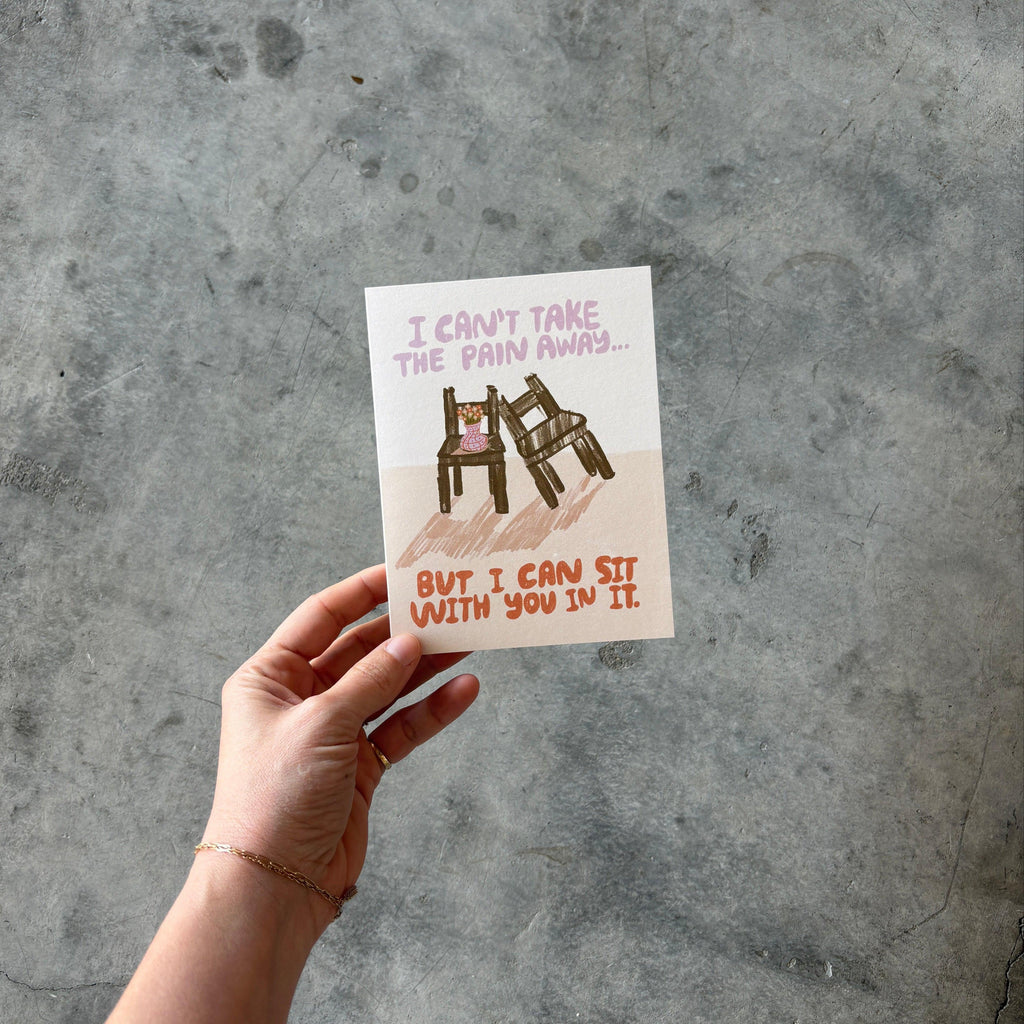 I CAN'T TAKE
THE PAIN AWAY...
BUT I CAN SIT
WITH YOU IN IT.